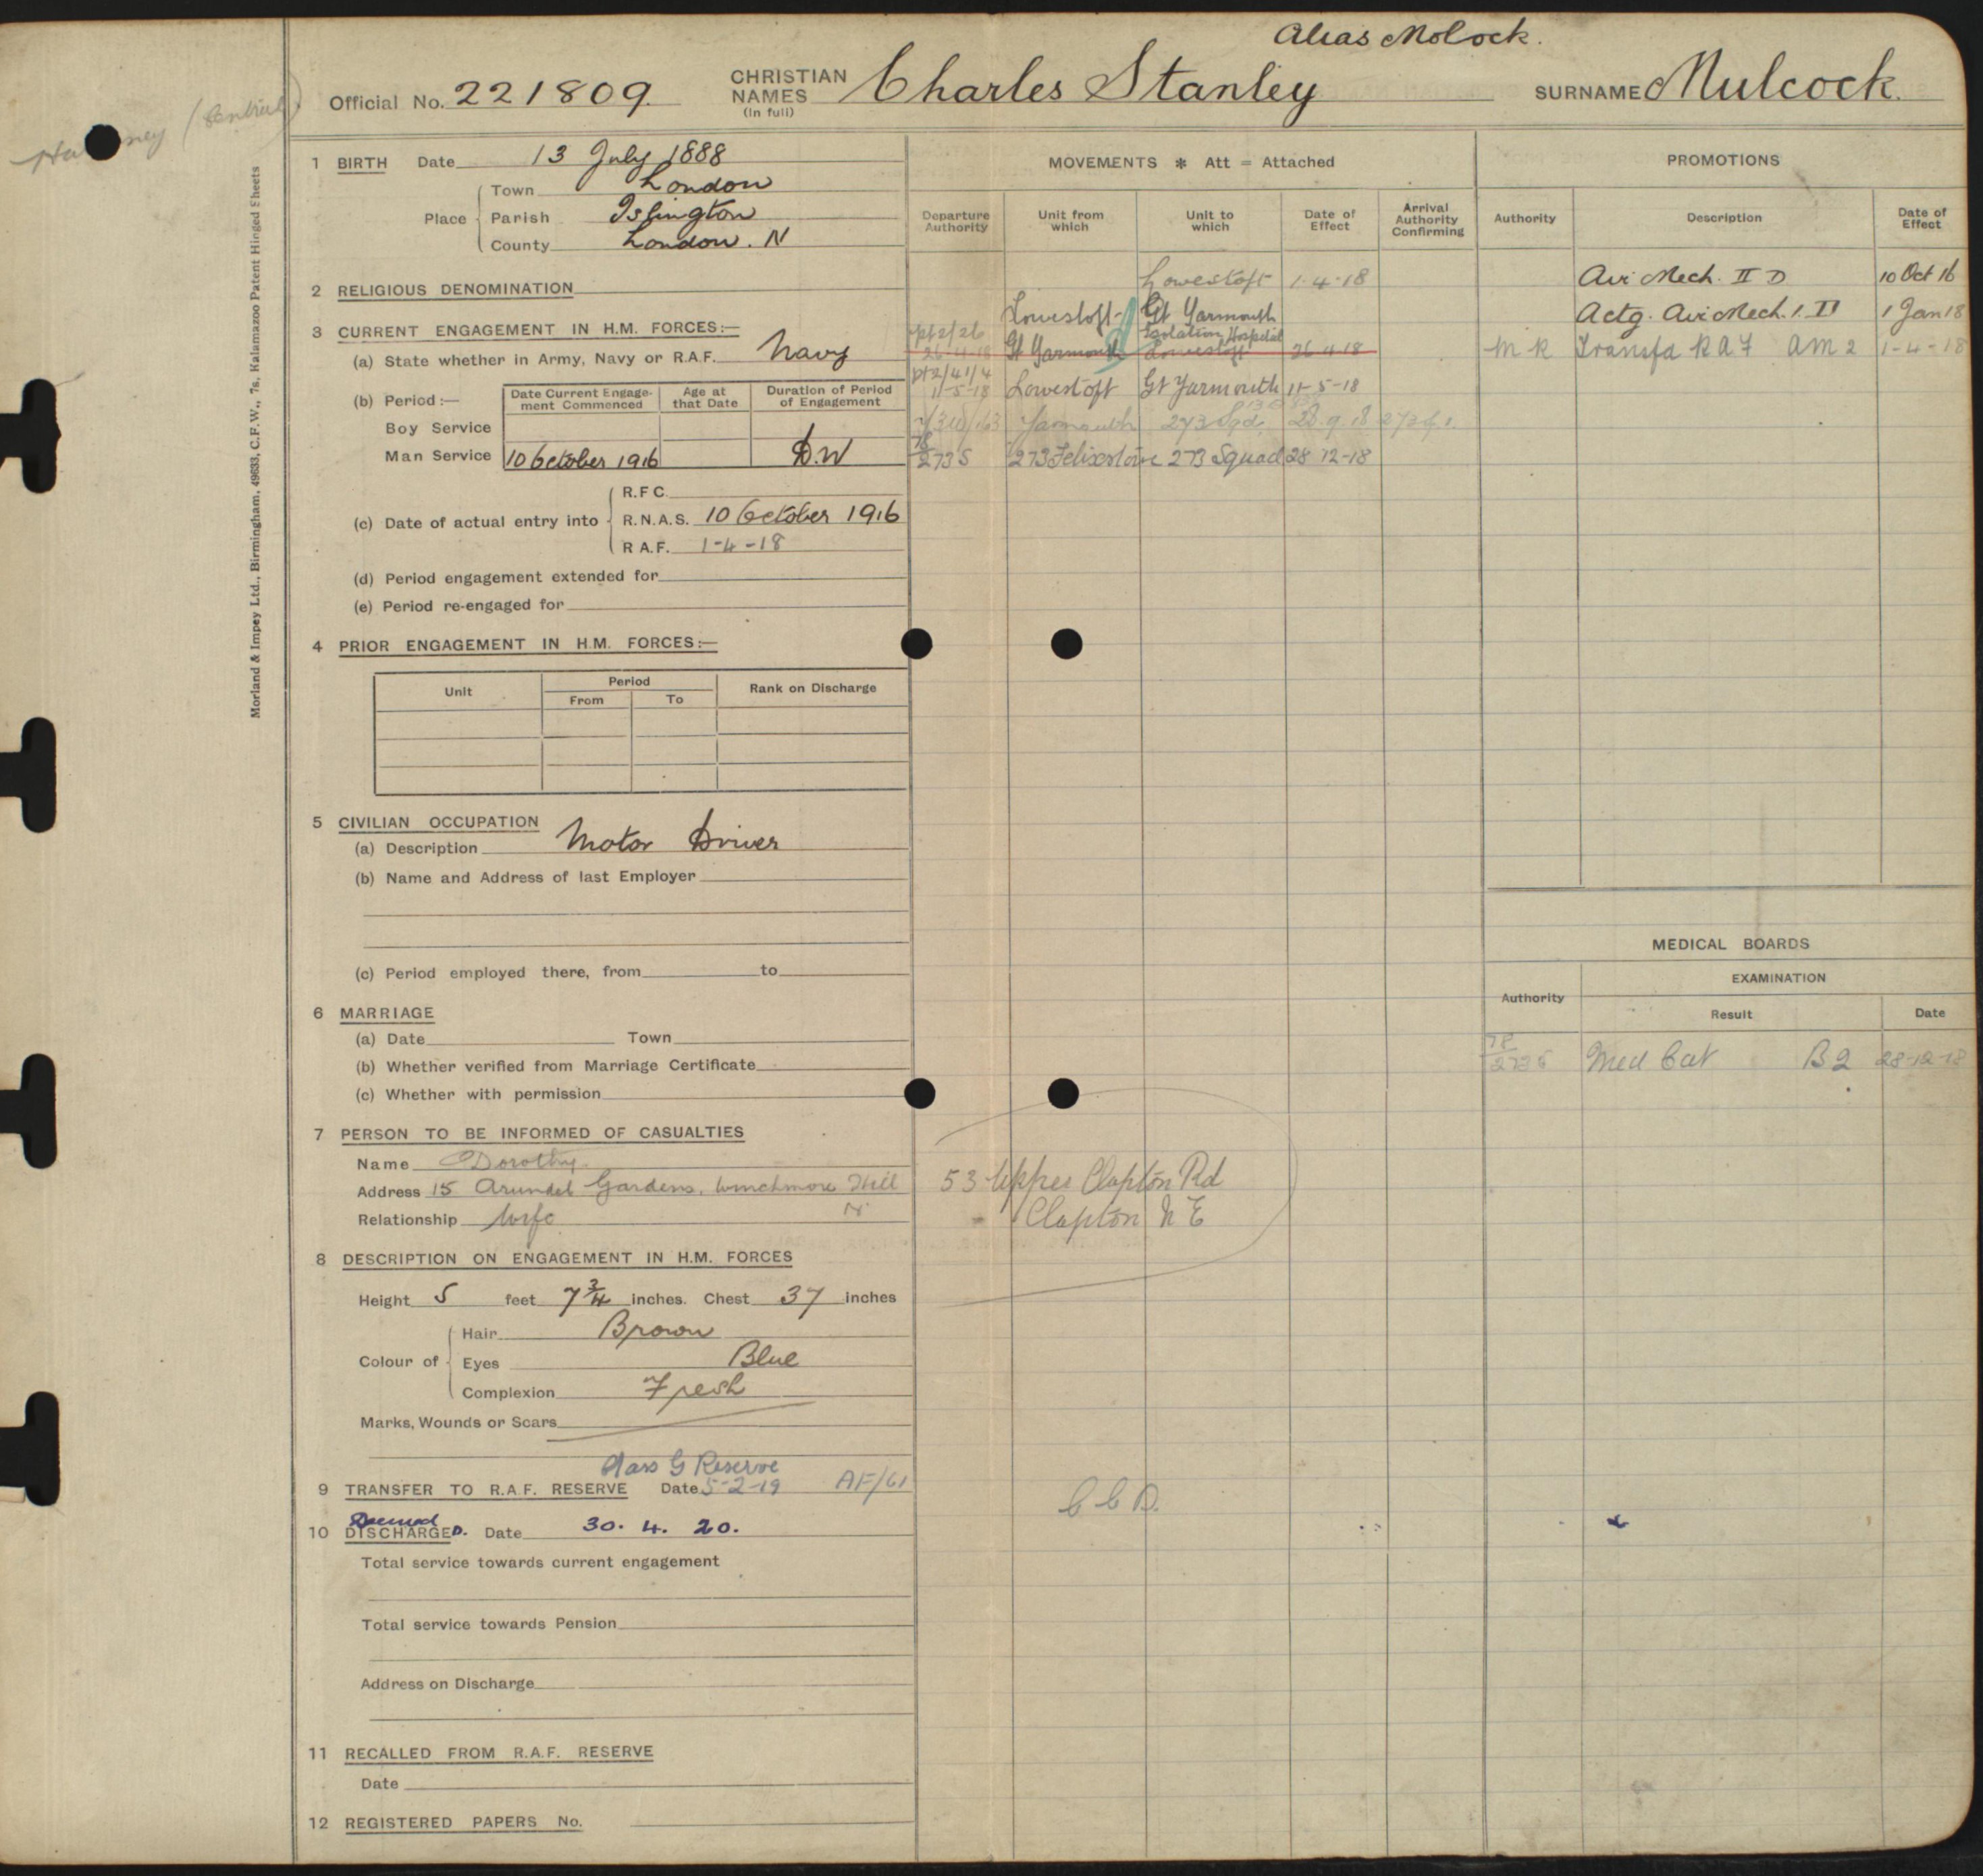 Alias Molock.
Official No. 221809. CHRISTIAN NAMES (in full) Charles Stanley SURNAME Mulcock.
(Central)
Morland & Impey Ltd., Birmingham, 49633, C.F.W., 7s, Kalamazoo Patent Hinged Sheets
1 BIRTH Date 13 July 1888
Place Town London
Parish Islington
County London. N
2 RELIGIOUS DENOMINATION
3 CURRENT ENGAGEMENT IN H.M. FORCES:—
(a) State whether in Army, Navy or R.A.F. Navy
(b) Period:— Date Current Engagement Commenced Age at that Date Duration of Period of Engagement
Boy Service
Man Service 10 October 1916 D.W
(c) Date of actual entry into R.F.C.
R.N.A.S. 10 October 1916
R.A.F. 1-4-18
(d) Period engagement extended for
(e) Period re-engaged for
4 PRIOR ENGAGEMENT IN H.M. FORCES:—
Unit Period Rank on Discharge
From To
5 CIVILIAN OCCUPATION
(a) Description Motor Driver
(b) Name and Address of last Employer
(c) Period employed there, from to
6 MARRIAGE
(a) Date Town
(b) Whether verified from Marriage Certificate
(c) Whether with permission
7 PERSON TO BE INFORMED OF CASUALTIES
Name Dorothy
Address 15 Arundel Gardens, Winchmore Hill
N.
Relationship Wife
53 Upper Clapton Rd
Clapton N E
8 DESCRIPTION ON ENGAGEMENT IN H.M. FORCES
Height 5 feet 7 3/4 inches. Chest 37 inches
Colour of Hair Brown
Eyes Blue
Complexion Fresh
Marks, Wounds or Scars
Class G Reserve
9 TRANSFER TO R.A.F. RESERVE Date 5-2-19 AF/61
Deemed
10 DISCHARGED. Date 30. 4. 20.
Total service towards current engagement
Total service towards Pension
Address on Discharge
11 RECALLED FROM R.A.F. RESERVE
Date
12 REGISTERED PAPERS No.
MOVEMENTS * Att = Attached
Departure Authority Unit from which Unit to which Date of Effect Arrival Authority Confirming
Lowestoft 1-4-18
Lowestoft Gt Yarmouth
pt 2/26 26-4-18 Gt Yarmouth Isolation Hospital Lowestoft 26-4-18
pt 2/41/4 11-5-18 Lowestoft Gt Yarmouth 11-5-18
Yarmouth 273 Sqd. 28.9.18
78/273S 273 Felixstowe 273 Squad 28-12-18
PROMOTIONS
Authority Description Date of Effect
Air Mech. II D 10 Oct 16
Actg. Air Mech. I. D 1 Jan 18
M R Transfd R A F A M 2 1-4-18
MEDICAL BOARDS
Authority EXAMINATION
Result Date
78/273S Med Cat B2 28-12-18